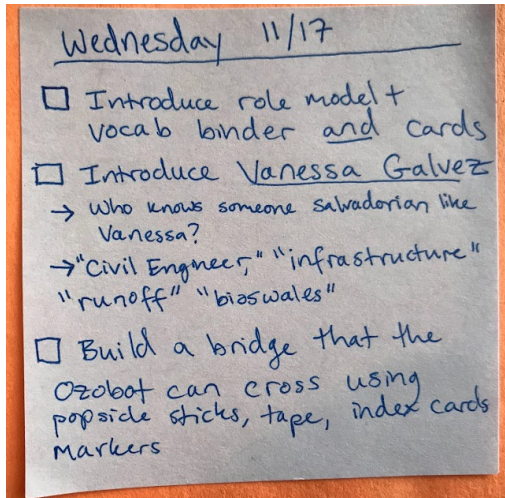 Wednesday 11/17
☐ Introduce role model +
vocab binder and cards
☐ Introduce Vanessa Galvez
→ Who knows someone salvadorian like
Vanessa?
→ "Civil Engineer," "infrastructure"
"runoff" "bioswales"
☐ Build a bridge that the
Ozobot can cross using
popsicle sticks, tape, index cards
markers